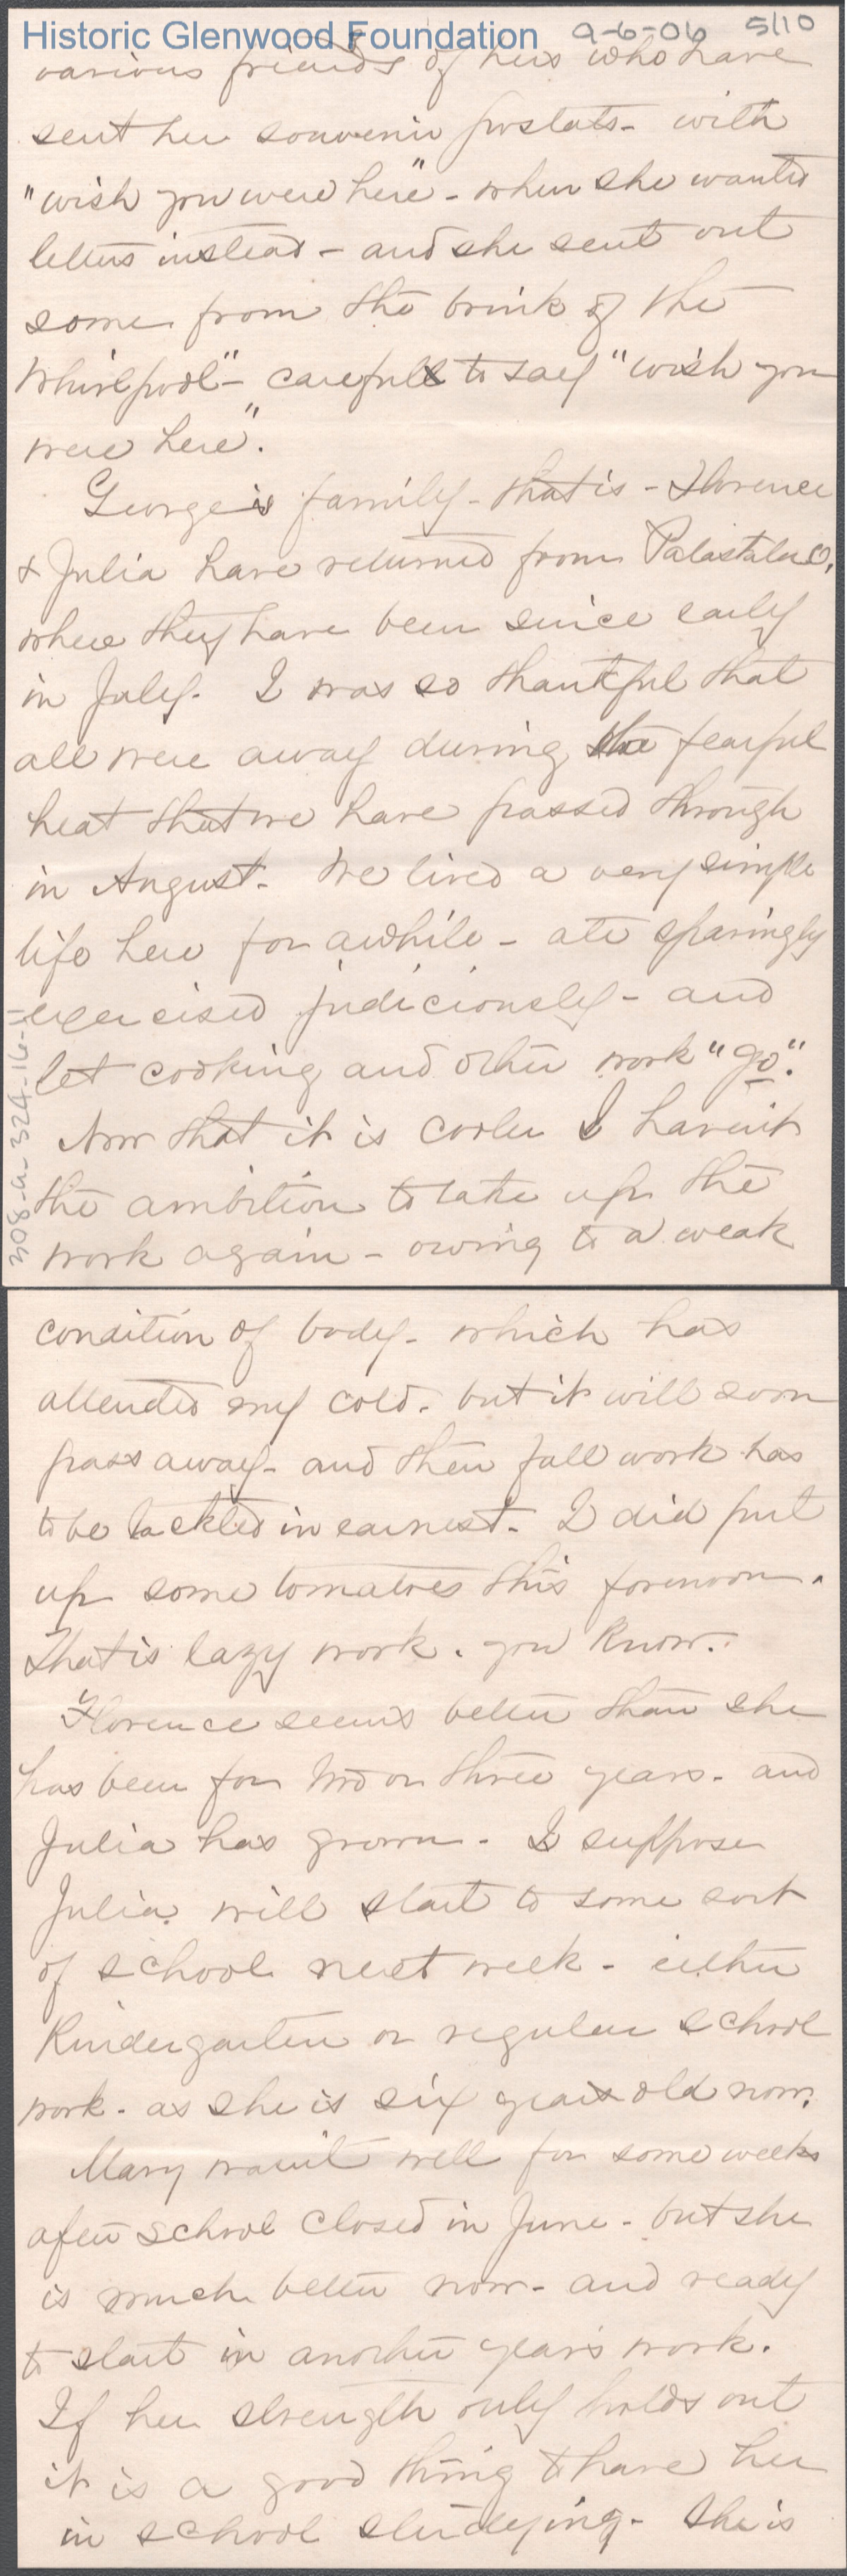 Historic Glenwood Foundation 9-6-06 5/10
various friends of hers who have
sent her souvenir postals - with
"wish you were here" - when she wanted
letters instead - and she sent out
some from the brink of the
Whirlpool" - careful to say "wish you
were here".
George's family - that is - Florence
& Julia have returned from Patastala O,
where they have been since early
in July. I was so thankful that
all were away during the fearful
heat that we have passed through
in August. We lived a very simple
life here for awhile - ate sparingly
exercised judiciously - and
let cooking and other work "go".
Now that it is cooler I haven't
the ambition to take up the
work again - owing to a weak
308-a-324-16-11
condition of body - which has
attended my cold. but it will soon
pass away - and then fall work has
to be tackled in earnest. I did put
up some tomatoes this forenoon.
That is lazy work. you know.
Florence seems better than she
has been for two or three years - and
Julia has grown - I suppose
Julia will start to some sort
of school next week - either
Kindergarten or regular school
work - as she is six years old now.
Mary wasn't well for some weeks
after school closed in June - but she
is much better now - and ready
to start in another year's work.
If her strength only holds out
it is a good thing to have her
in school studying. She is